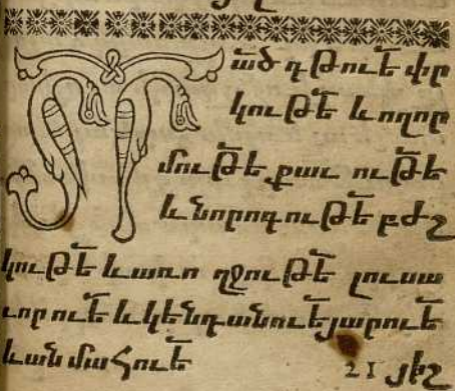 Տած գթուե փր
կութե և ողոր
մութե քաւ ութե
և նորոգութե բժշ
կութե և առո ղջութե լուսա
ւորուե և կենդանուե յարուե
և ան մահուե 21 յիշ